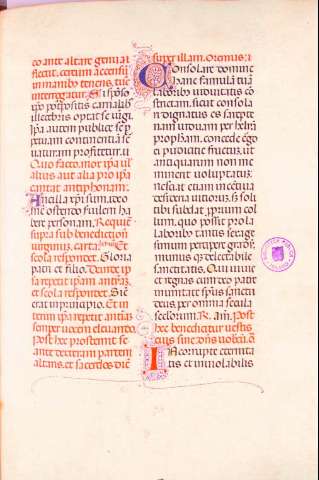 co ante altare genu al
flectit, cereum accensum
in manibus tenens, tuc
interrogatur. Si sponso
xpo postpositis carnalib
illecebris optat se iungi.
Ipa autem publice se p
petuam continentiam se
uaturam profitetur. ii
Quo facto, mox ipa ul
alius aut alia pro ipa
cantat antiphonam.
Ancilla xpi sum, ideo
me ostendo seruilem ha
bere personam. Require
supra sub benedictione
uirginum, carta Et
scola respondet. Gloria
patri et filio. Deinde ip
sa repetit ipam antiph
et scola respondet. Sic
erat in principio. Et in
terum ipa repetit antiph
semper uocem eleuando.
Post hec prosternit se
ante dexteram partem
altaris, et sacerdos dicit
super illam. Oremus.
Consolare domine
hanc famulam tuam
laboribus uiduitatis co
strictam, sicut consola
ri dignatus es sarepte
nam uiduam per heliam
prophetam. Concede ei
pudicitie fructum, ut
antiquarum non me
minerit uoluptatum.
Nesciat etiam incentiua
desideria uitiorum, ut so
li tibi subdat proprium col
lum, quo possit pro la
boribus tantis sexage
simum percipere granum,
munus delectabile
sanctitatis. Qui uiuis
et regnas cum deo patre
in unitate spiritus sancti
deus, per omnia secula
seculorum. R. Am. Post
hec benedicitur uestis
eius sine dominus uobiscum.
Incorrupte eternita
tis et inuiolabilis